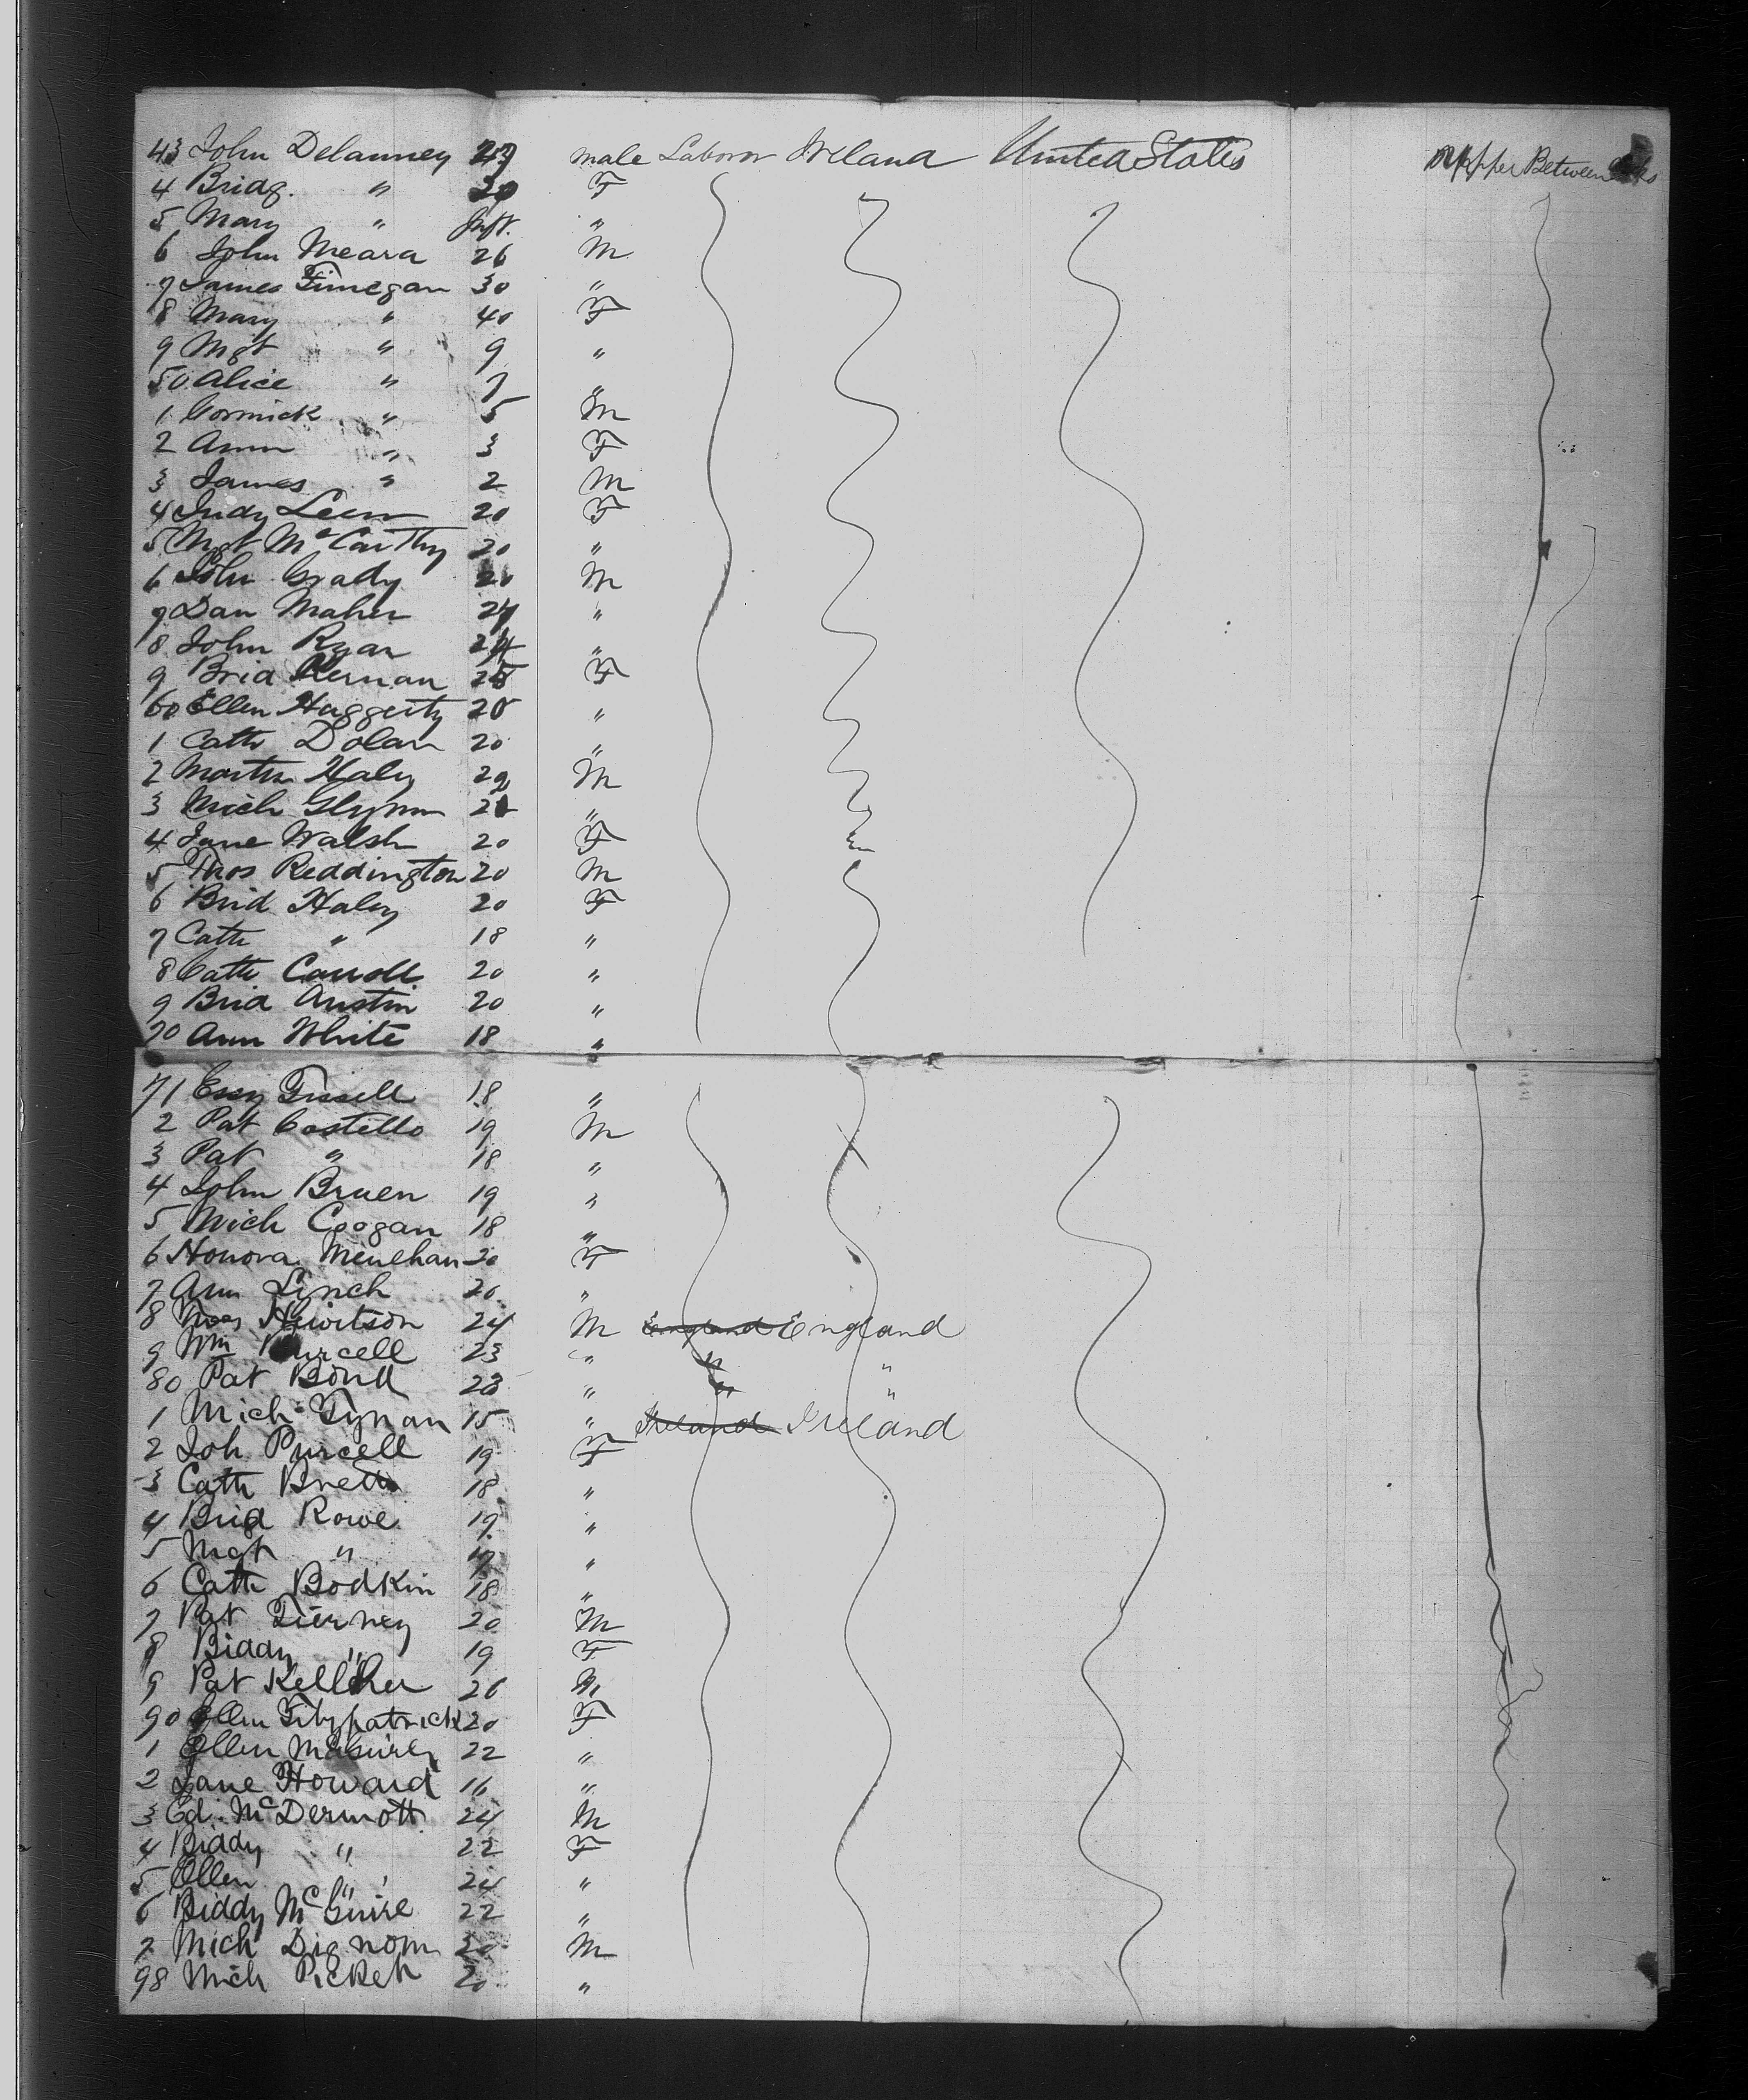 43 John Delanney 29 male Labover Ireland United States Upper Between
4 Bridg. " 30 F
5 Mary " Inft. "
6 John Meara 26 M
7 James Finnegan 30 "
8 Mary " 40 F
9 Mgt " 9 "
50 Alice " 7 "
1 Cormick " 5 M
2 Ann " 3 F
3 James " 2 M
4 Judy 20 F
5 Mgt McCarthy 20 "
6 John Grady M
7 Dan Maher 27 "
8 John Ryan 24 "
9 Brid 25 F
60 Ellen Haggerty 20 "
1 Cath Dolan 20 "
2 Martin Haley M
3 Mich Glynn "
4 Jane Walsh 20 F En
5 Thos Reddington 20 M
6 Brid Haley 20 F
7 Cath " 18 "
8 Cath Carroll. 20 "
9 Brid Austin 20 "
70 Ann White 18 "
71 Essy 18 "
2 Pat Costello 19 M
3 Pat " 18 "
4 John Bruen 19 "
5 Mich Coogan 18 "
6 Honora Menehan 20 F
7 Ann Linch 20 "
8 Hewitson 24 M England England
9 Wm Purcell 23 " " "
80 Pat 23 " " "
1 Mich Tynan 15 " Ireland Ireland
2 Joh Purcell 19 F
3 Cath Brett 18 "
4 Brid Rowe 19 "
5 Mgt " 17 "
6 Cath Bodkin 18 "
7 Pat Tierney 20 M
8 Biddy " 19 F
9 Pat Kelleher 26 M
90 Ellen Fitzpatrick 20 F
1 Ellen McGuire 22 "
2 Jane Howard 16 "
3 Ed. McDermott 24 M
4 Biddy " 22 F
5 Ellen " 24 "
6 Biddy McGuire 22 "
7 Mich Dignom 20 M
98 Mich 20 "